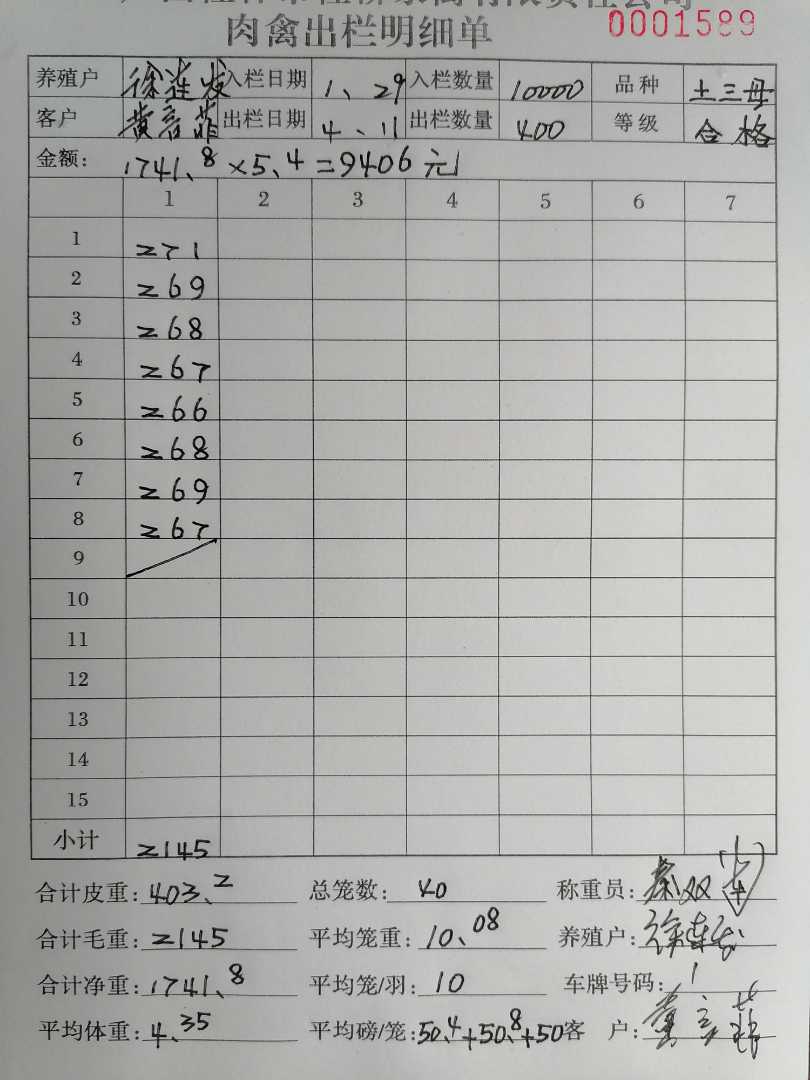 肉禽出栏明细单 0001589
养殖户 徐连发 入栏日期 1、29 入栏数量 10000 品种 土三母
客户 黄言菲 出栏日期 4、11 出栏数量 400 等级 合格
金额: 1741.8×5.4=9406元
1 2 3 4 5 6 7
1 271
2 269
3 268
4 267
5 266
6 268
7 269
8 267
9
10
11
12
13
14
15
小计 2145
合计皮重: 403.2 总笼数: 40 称重员:
合计毛重: 2145 平均笼重: 10.08 养殖户: 徐连发
合计净重: 1741.8 平均笼/羽: 10 车牌号码: 1
平均体重: 4.35 平均磅/笼: 50.4+50.8+50 客 户: 黄言菲